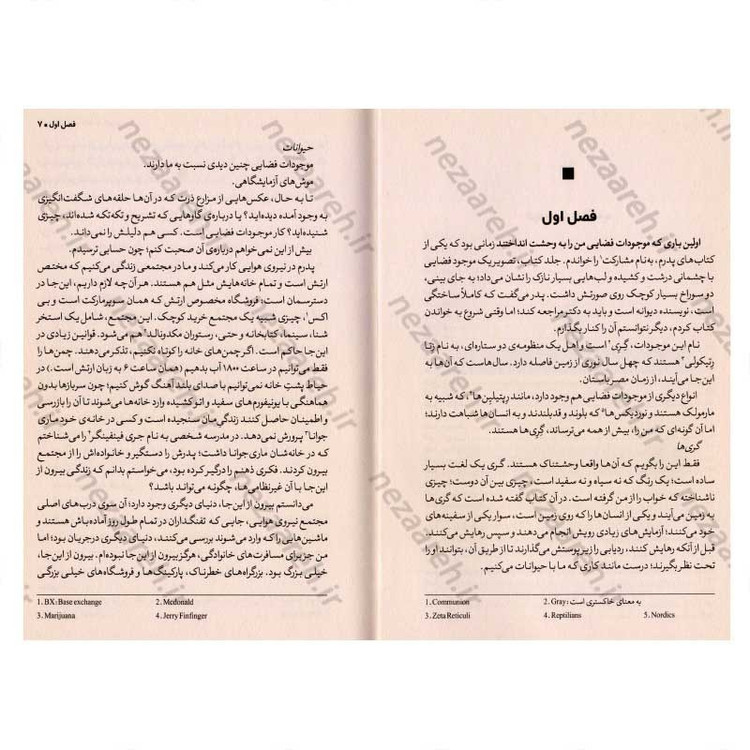 فصل اول
اولین باری که موجودات فضایی من را به وحشت انداختند زمانی بود که یکی از
کتاب‌های پدرم، به‌نام مشارکت¹ را خواندم. جلد کتاب، تصویر یک موجود فضایی
با چشمانی درشت و کشیده و لب‌هایی بسیار نازک را نشان می‌داد؛ به جای بینی،
دو سوراخ بسیار کوچک روی صورتش داشت. پدر می‌گفت که کاملا ساختگی
است، نویسنده دیوانه است و باید به دکتر مراجعه کند؛ اما وقتی شروع به خواندن
کتاب کردم، دیگر نتوانستم آن را کنار بگذارم.
نام این موجودات، گِری² است و اهل یک منظومه‌ی دو ستاره‌ای، به نام زتا
رتیکولی³ هستند که چهل سال نوری از زمین فاصله دارد. سال‌هاست که آن‌ها به
این‌جا می‌آیند، از زمان مصر باستان.
انواع دیگری از موجودات فضایی هم وجود دارد، مانند رِپتیلین‌ها⁴، که شبیه به
مارمولک هستند و نوردیکس‌ها⁵ که بلوند و قدبلندند و به انسان‌ها شباهت دارند؛
اما آن گونه‌ای که من را، بیش از همه می‌ترساند، گِری‌ها هستند.
گِری‌ها
فقط این را بگویم که آن‌ها واقعا وحشتناک هستند. گری یک لغت بسیار
ساده است؛ یک رنگ که نه سیاه و نه سفید است، چیزی بین آن دوست؛ چیزی
ناشناخته که خواب را از من گرفته است. در آن کتاب گفته شده است که گری‌ها
به زمین می‌آیند و یکی از انسان‌ها را که روی زمین است، سوار یکی از سفینه‌های
خود می‌کنند؛ آزمایش‌های زیادی رویش انجام می‌دهند و سپس رهایش می‌کنند.
قبل از آنکه رهایش کنند، ردیابی را زیر پوستش می‌گذارند تا از طریق آن، بتوانند او را
تحت نظر بگیرند؛ درست مانند کاری که ما با حیوانات می‌کنیم.
1. Communion
2. Gray: به معنای خاکستری است
3. Zeta Reticuli
4. Reptilians
5. Nordics
فصل اول ● ۷
حیوانات
موجودات فضایی چنین دیدی نسبت به ما دارند.
موش‌های آزمایشگاهی.
تا به حال، عکس‌هایی از مزارع ذرت که در آن‌ها حلقه‌های شگفت‌انگیزی
به وجود آمده دیده‌اید؟ یا درباره‌ی گاوهایی که تشریح و تکه‌تکه شده‌اند، چیزی
شنیده‌اید؟ کار موجودات فضایی است. کسی هم دلیلش را نمی‌داند.
بیش از این نمی‌خواهم درباره‌ی آن صحبت کنم؛ چون حسابی ترسیدم.
پدرم در نیروی هوایی کار می‌کند و ما در مجتمعی زندگی می‌کنیم که مختص
ارتش است و تمام خانه‌هایش مثل هم هستند. هر آن‌چه لازم داریم، این‌جا در
دسترسمان است؛ فروشگاه مخصوص ارتش که همان سوپرمارکت است و بی
اکس¹، چیزی شبیه یک مجتمع خرید کوچک. این مجتمع، شامل یک استخر
شنا، سینما، کتابخانه و حتی، رستوران مک‌دونالد² هم می‌شود. قوانین زیادی در
این‌جا حاکم است. اگر چمن‌های خانه را کوتاه نکنیم، تذکر می‌دهند. چمن‌ها را
فقط می‌توانیم در ساعت ۱۸۰۰ آب بدهیم (همان ساعت ۶ به زبان ارتش است.) در
حیاط پشتِ خانه نمی‌توانیم با صدای بلند آهنگ گوش کنیم؛ چون سربازها بدون
هماهنگی با یونیفورم‌های سفید و اتو کشیده وارد خانه‌ها می‌شوند تا آن را بازرسی
و اطمینان حاصل کنند زندگی‌مان سنجیده است و کسی در خانه‌ی خود ماری
جوانا³ پرورش نمی‌دهد. در مدرسه شخصی به نام جری فینفینگر⁴ را می‌شناختم
که در خانه‌شان ماری‌جوانا داشت؛ پدرش را دستگیر و خانواده‌اش را از مجتمع
بیرون کردند. فکری ذهنم را درگیر کرده بود، می‌خواستم بدانم که زندگی بیرون از
این‌جا با آن غیرنظامی‌ها، چگونه می‌تواند باشد؟
می‌دانستم بیرون از این‌جا، دنیای دیگری وجود دارد؛ آن سوی درب‌های اصلی
مجتمع نیروی هوایی، جایی که تفنگداران در تمام طول روز آماده‌باش هستند و
ماشین‌هایی را که وارد می‌شوند بررسی می‌کنند، دنیای دیگری در جریان بود؛ اما
من جز برای مسافرت‌های خانوادگی، هرگز بیرون از این‌جا نبوده‌ام. بیرون از این‌جا،
خیلی بزرگ بود. بزرگراه‌های خطرناک، پارکینگ‌ها و فروشگاه‌های خیلی بزرگی
1. BX: Base exchange
2. Mcdonald
3. Marijuana
4. Jerry Finfinger
nezaareh.ir